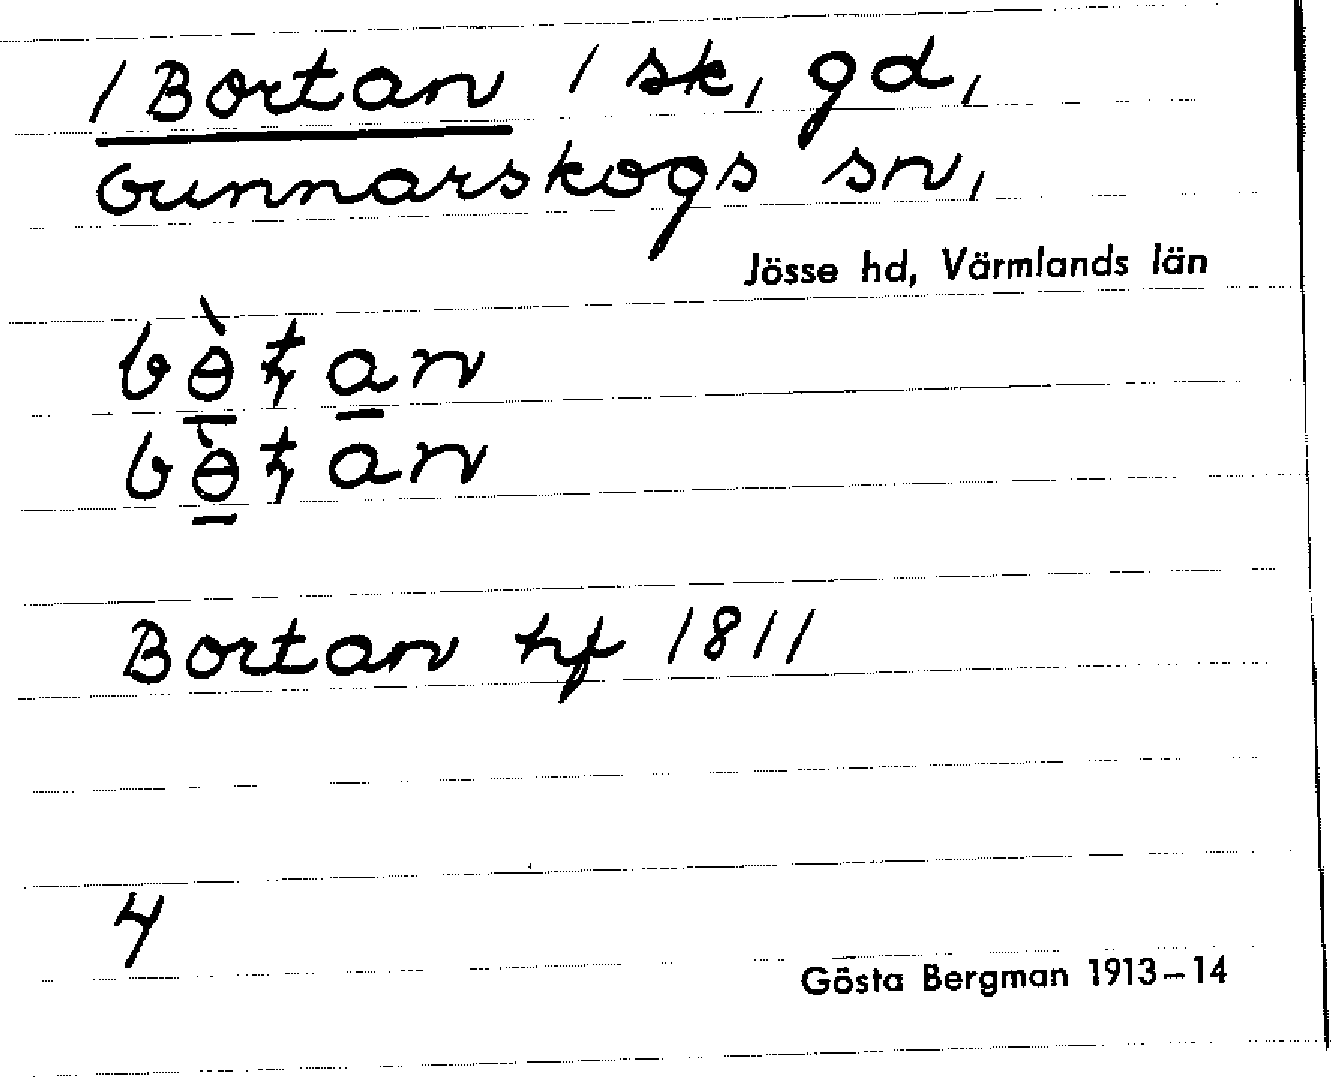 /Bortan / sk, gd,
Gunnarskogs sn,
Jösse hd, Värmlands län
bɵ̀ʈan
bɵ̀ʈan
Bortan hf 1811
4
Gösta Bergman 1913–14